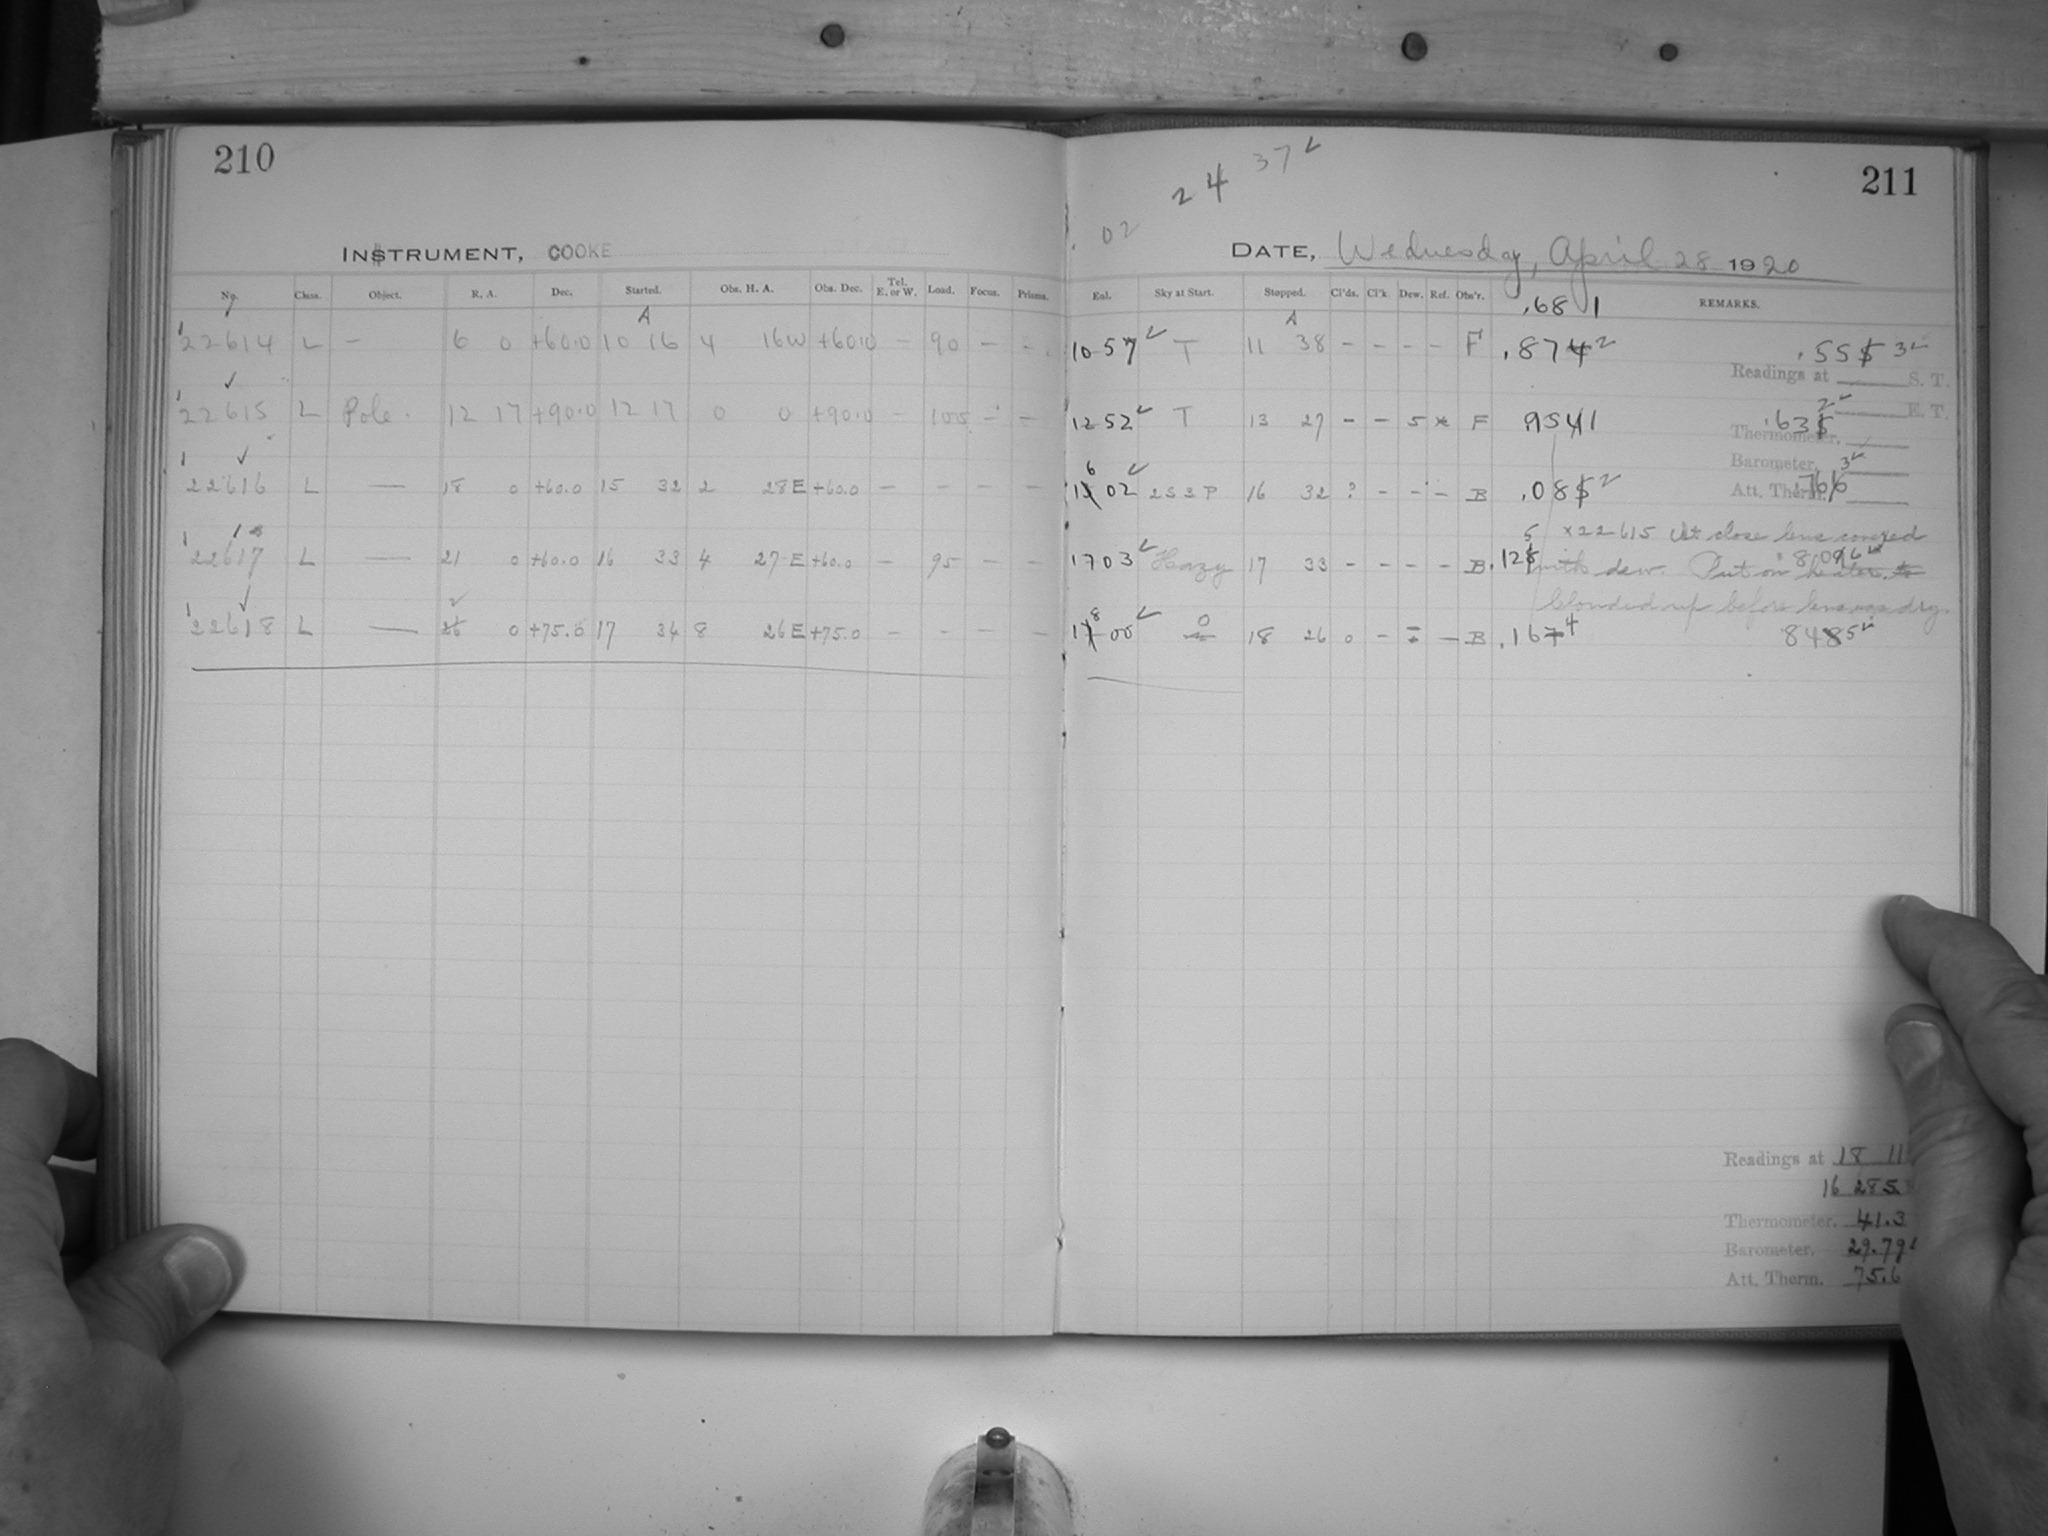 210
INSTRUMENT, COOKE
No. Class. Object. R. A. Dec. Started. Obs. H. A. Obs. Dec. Tel. E. or W. Load. Focus. Prisms.
A
22614 L - 6 0 +60.0 10 16 4 16W +60.0 - 90 - -
22615 L Pole. 12 17 +90.0 12 17 0 0 +90.0 - 105 - -
22616 L — 18 0 +60.0 15 32 2 28E +60.0 - - - -
22617 L — 21 0 +60.0 16 33 4 27E +60.0 - 95 - -
22618 L — 0 +75.0 17 34 8 26E +75.0 - - - -
24 37
211
02
DATE, Wednesday, April 28 1920
Eql. Sky at Start. Stopped. Cl'ds. Cl'k. Dew. Ref. Obs'r. REMARKS.
.681
A
10 57 T 11 38 - - - - F .8742 .553
Readings at S. T.
E. T.
12 52 T 13 27 - - 5 x F .9541 .632
Thermometer.
Barometer.
16 02 2S3P 16 32 ? - - - B .082
Att. Therm.
x22615 At close lens covered
17 03 Hazy 17 33 - - - - B .125 with dew. Put on heater.
Clouded up before lens was dry.
18 00 0 18 26 0 - - B .164 845
Readings at 18 11
16 285
Thermometer. 41.3
Barometer. 29.79
Att. Therm. 75.6